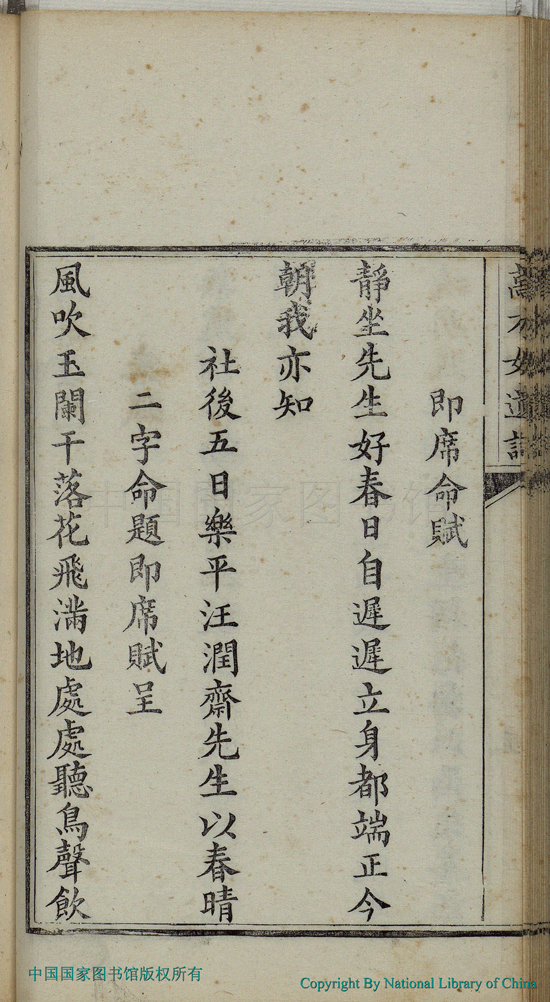 即席命賦
靜坐先生好春日自遲遲立身都端正今
朝我亦知
社後五日樂平汪潤齋先生以春晴
二字命題即席賦呈
風吹玉闌干落花飛滿地處處聽鳥聲飲
中国国家图书馆
中国国家图书馆版权所有
Copyright By National Library of China